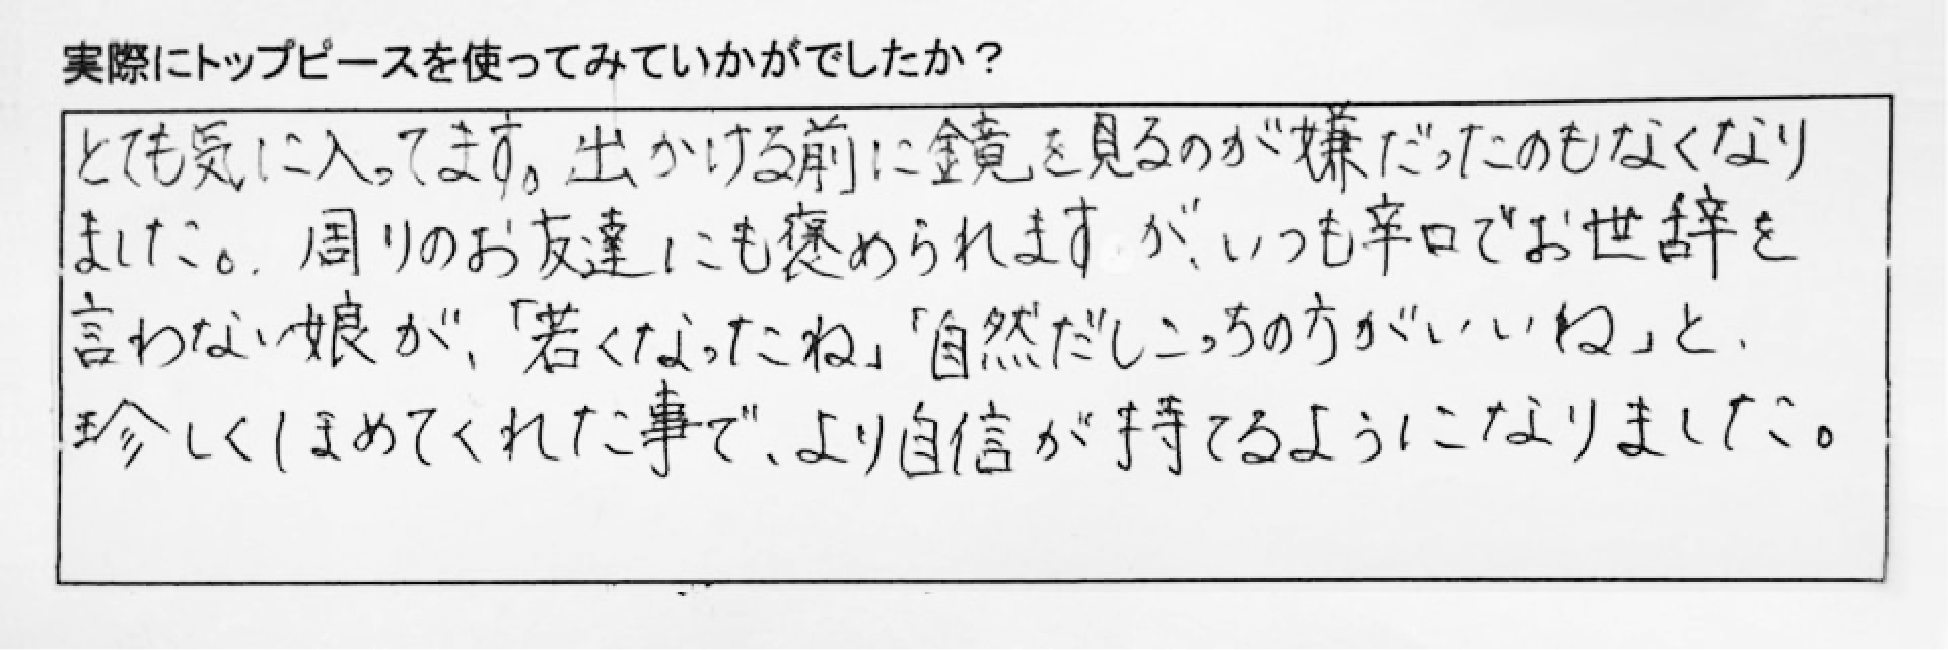 実際にトップピースを使ってみていかがでしたか？
とても気に入ってます。出かける前に鏡を見るのが嫌だったのもなくなり
ました。周りのお友達にも褒められますが、いつも辛口でお世辞を
言わない娘が、「若くなったね」「自然だしこっちの方がいいね」と、
珍しくほめてくれた事で、より自信が持てるようになりました。